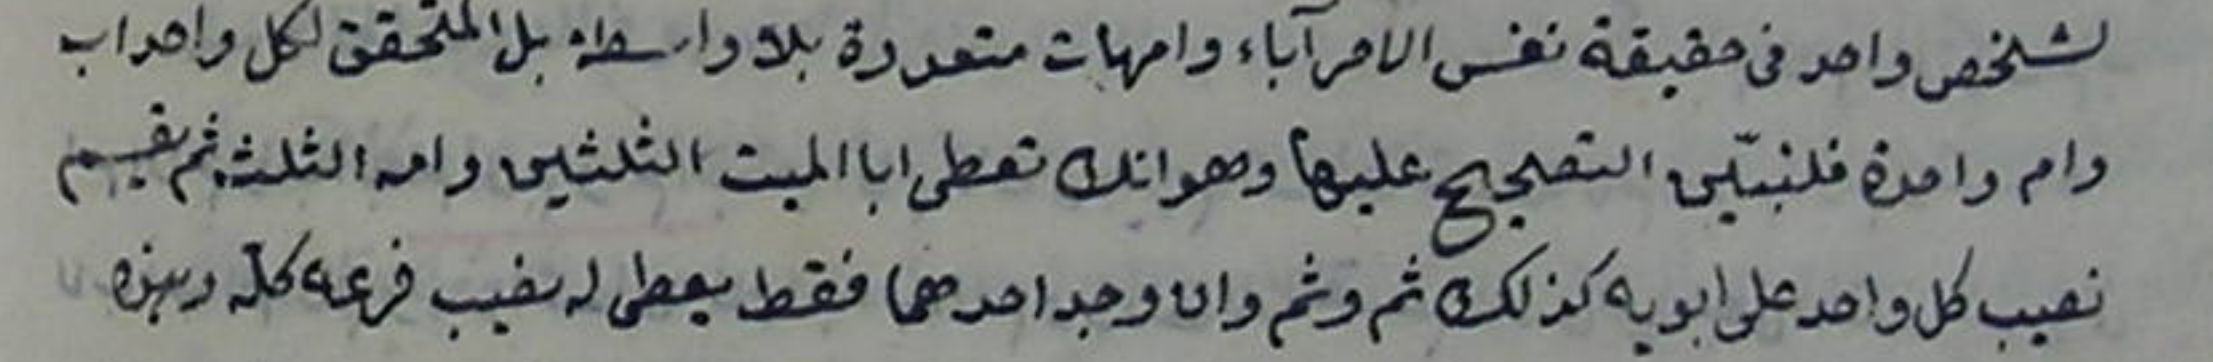 لشخص واحد فى حقيقة نفس الامر آباء وامهات متعددة بلا واسطة بل المتحقق لكل واحد اب
وام واحدة فلنبيّن التصحيح عليها وهو انك تعطى ابا الميت الثلثين وامه الثلث ثم يقسم
نصيب كل واحد على ابويه كذلك ثم وثم وان وجد احدهما فقط يعطى له نصيب فرعه كله وهذه